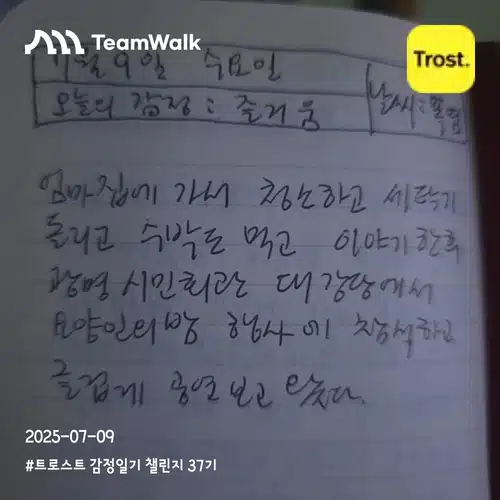 TeamWalk
Trost.
7월 9일 수요일
오늘의 감정 : 즐거움
날씨 : 폭염
엄마집에 가서 청소하고 세탁기
돌리고 수박도 먹고 이야기한 후
광명 시민회관 대강당에서
요양인의 밤 행사에 참석하고
즐겁게 공연보고 왔다.
2025-07-09
#트로스트 감정일기 챌린지 37기